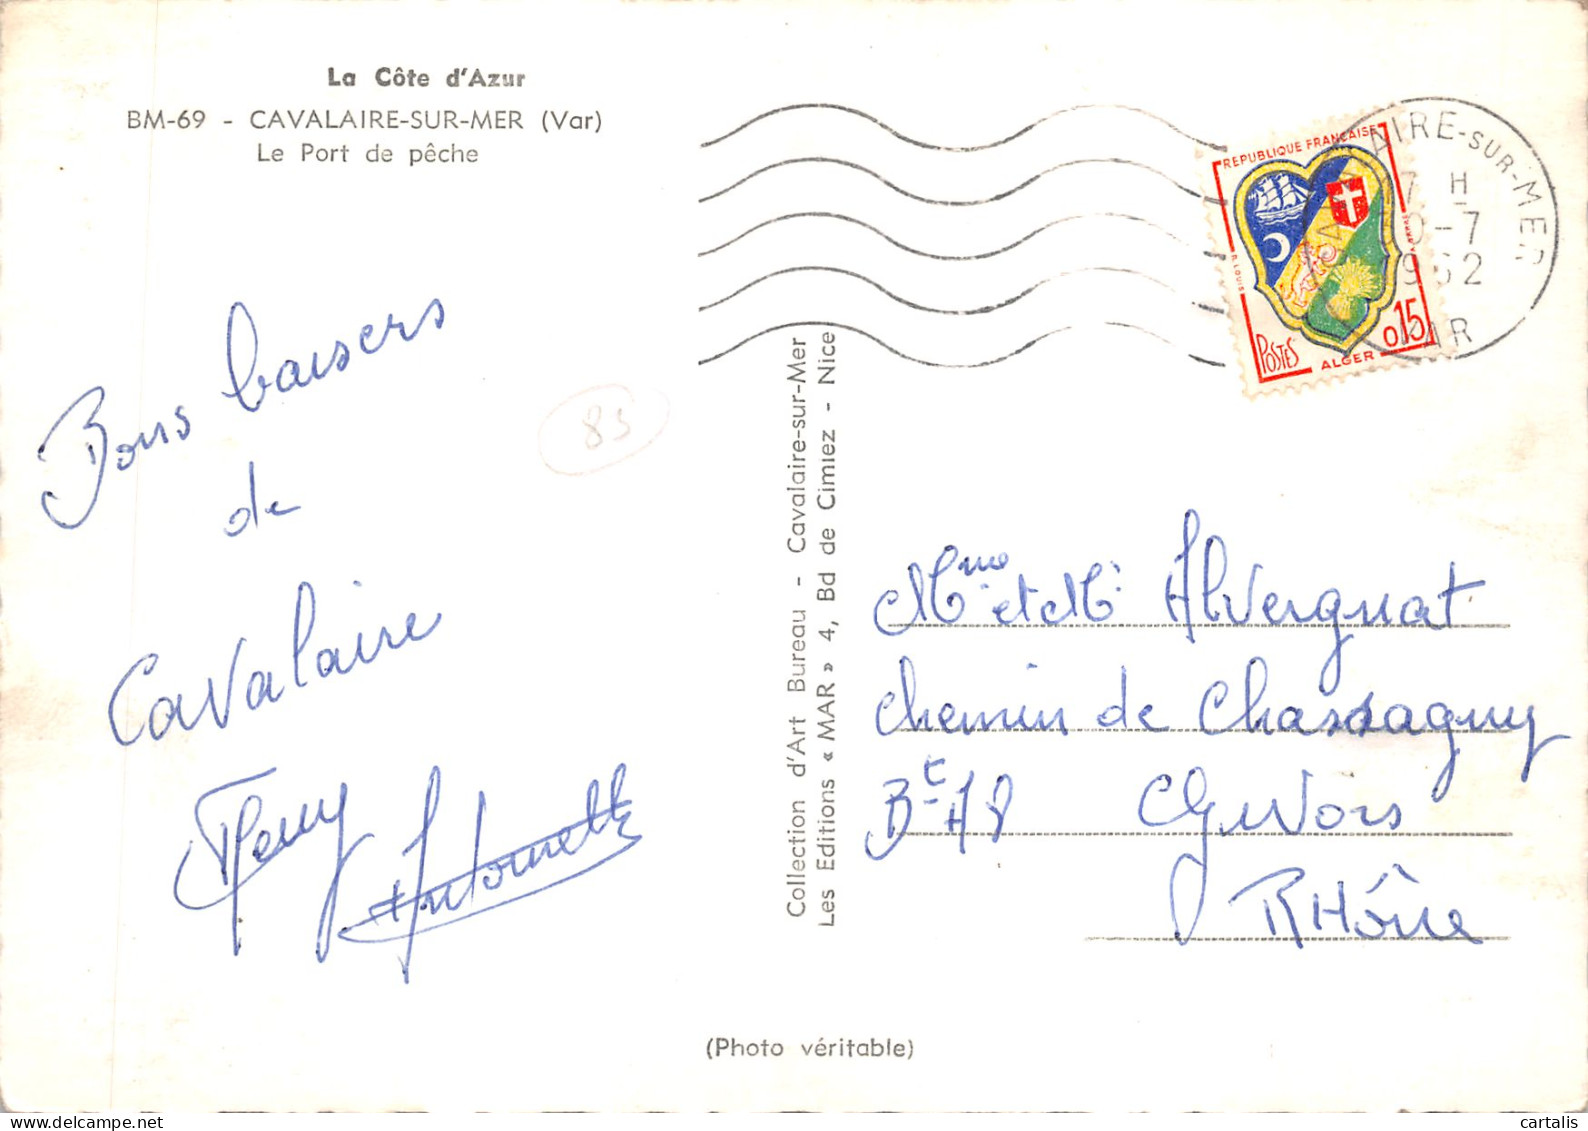 La Côte d'Azur
BM-69 - CAVALAIRE-SUR-MER (Var)
Le Port de pêche
Bons baisers
de
Cavalaire
Antoinette
83
Collection d'Art Bureau - Cavalaire-sur-Mer
Les Editions « MAR » 4, Bd de Cimiez - Nice
REPUBLIQUE FRANÇAISE
POSTES
ALGER
0,15
R. LOUIS
AIRE-SUR-MER
7 H
0-7
1962
VAR
Mme et Mr Alvergnat
Chemin de Chassagny
Bt A8 Givors
RHône
(Photo véritable)
cartalis